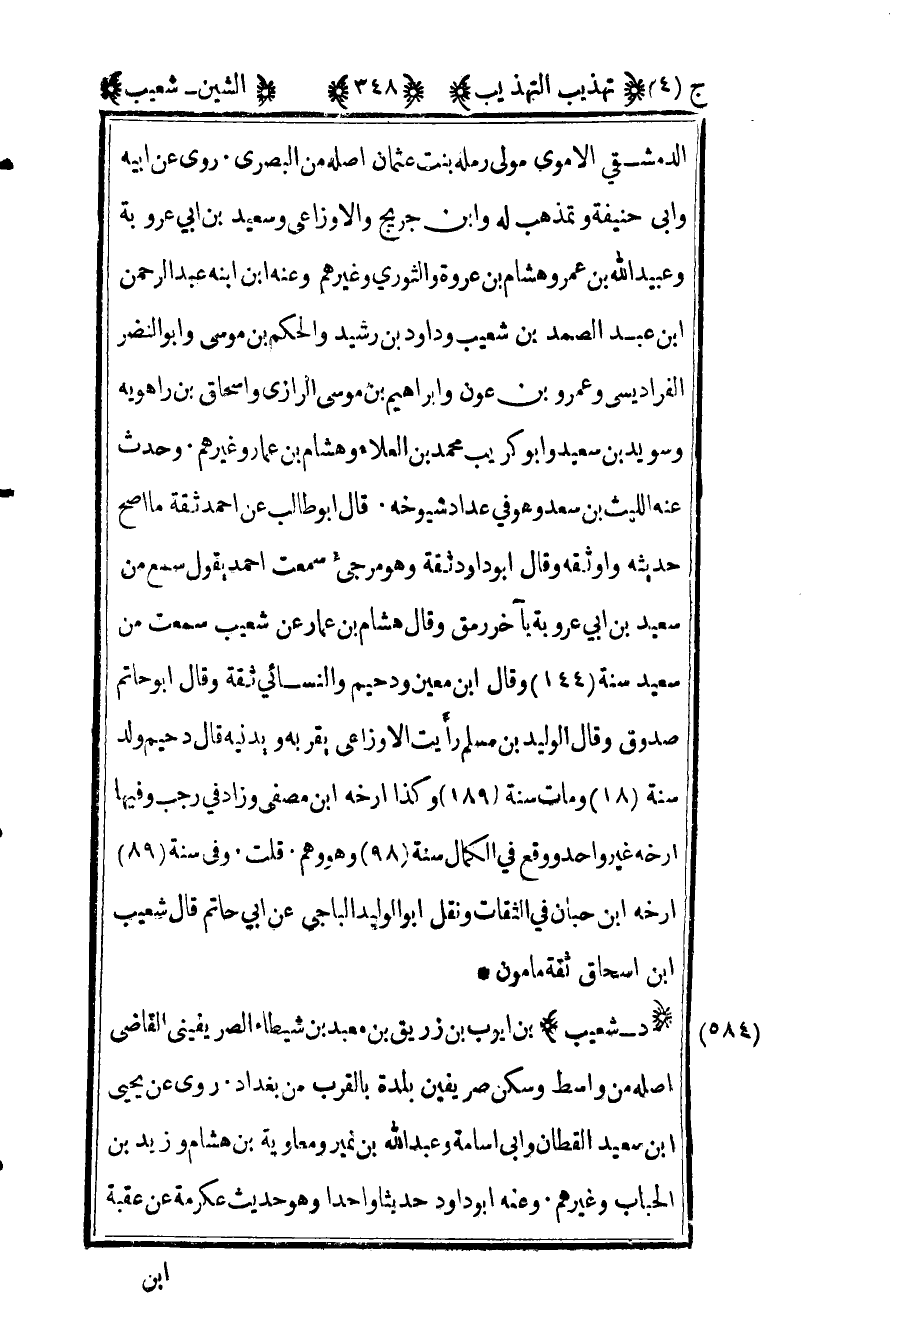 ج (٤) ﴿ تهذيب التهذيب ﴾ ﴿٣٤٨﴾ ﴿ الشين ـ شعيب ﴾
الدمشقي الاموى مولى رملة بنت عثمان اصله من البصرى · روى عن ابيه
وابى حنيفة وتمذهب له وابن جريج والاوزاعى وسعيد بن ابي عروبة
وعبيدالله بن عمرو هشام بن عروة والثوري وغيرهم وعنه ابن ابنه عبدالرحمن
ابن عبد الصمد بن شعيب وداود بن رشيد والحكم بن موسى وابوالنضر
الفراديسى وعمرو بن عون وابراهيم بن موسى الرازى واسحاق بن راهويه
وسويد بن سعيد وابوكريب محمد بن العلاء وهشام بن عمار وغيرهم · وحدث
عنه الليث بن سعد وهو في عداد شيوخه · قال ابوطالب عن احمد ثقة ما اصح
حديثه واوثقه وقال ابوداود ثقة وهو مرجئ سمعت احمد يقول سمع من
سعيد بن ابي عروبة بآخر رمق وقال هشام بن عمار عن شعيب سمعت من
سعيد سنة (١٤٤) وقال ابن معين ودحيم والنسائي ثقة وقال ابوحاتم
صدوق وقال الوليد بن مسلم رأيت الاوزاعى يقربه ويدنيه قال دحيم ولد
سنة (١٨) ومات سنة (١٨٩) وكذا ارخه ابن مصفى وزاد في رجب وفيها
ارخه غير واحد ووقع في الكمال سنة (٩٨) وهو وهم · قلت · وفى سنة (٨٩)
ارخه ابن حبان في الثقات ونقل ابوالوليد الباجي عن ابي حاتم قال شعيب
ابن اسحاق ثقة مامون •
(٥٨٤) ﴿ د ـ شعيب ﴾ بن ايوب بن زريق بن معبد بن شيطاء الصريفينى القاضى
اصله من واسط وسكن صريفين بلدة بالقرب من بغداد · روى عن يحيى
ابن سعيد القطان وابى اسامة وعبدالله بن نمير ومعاوية بن هشام وزيد بن
الحباب وغيرهم · وعنه ابوداود حديثا واحدا وهو حديث عكرمة عن عقبة
ابن